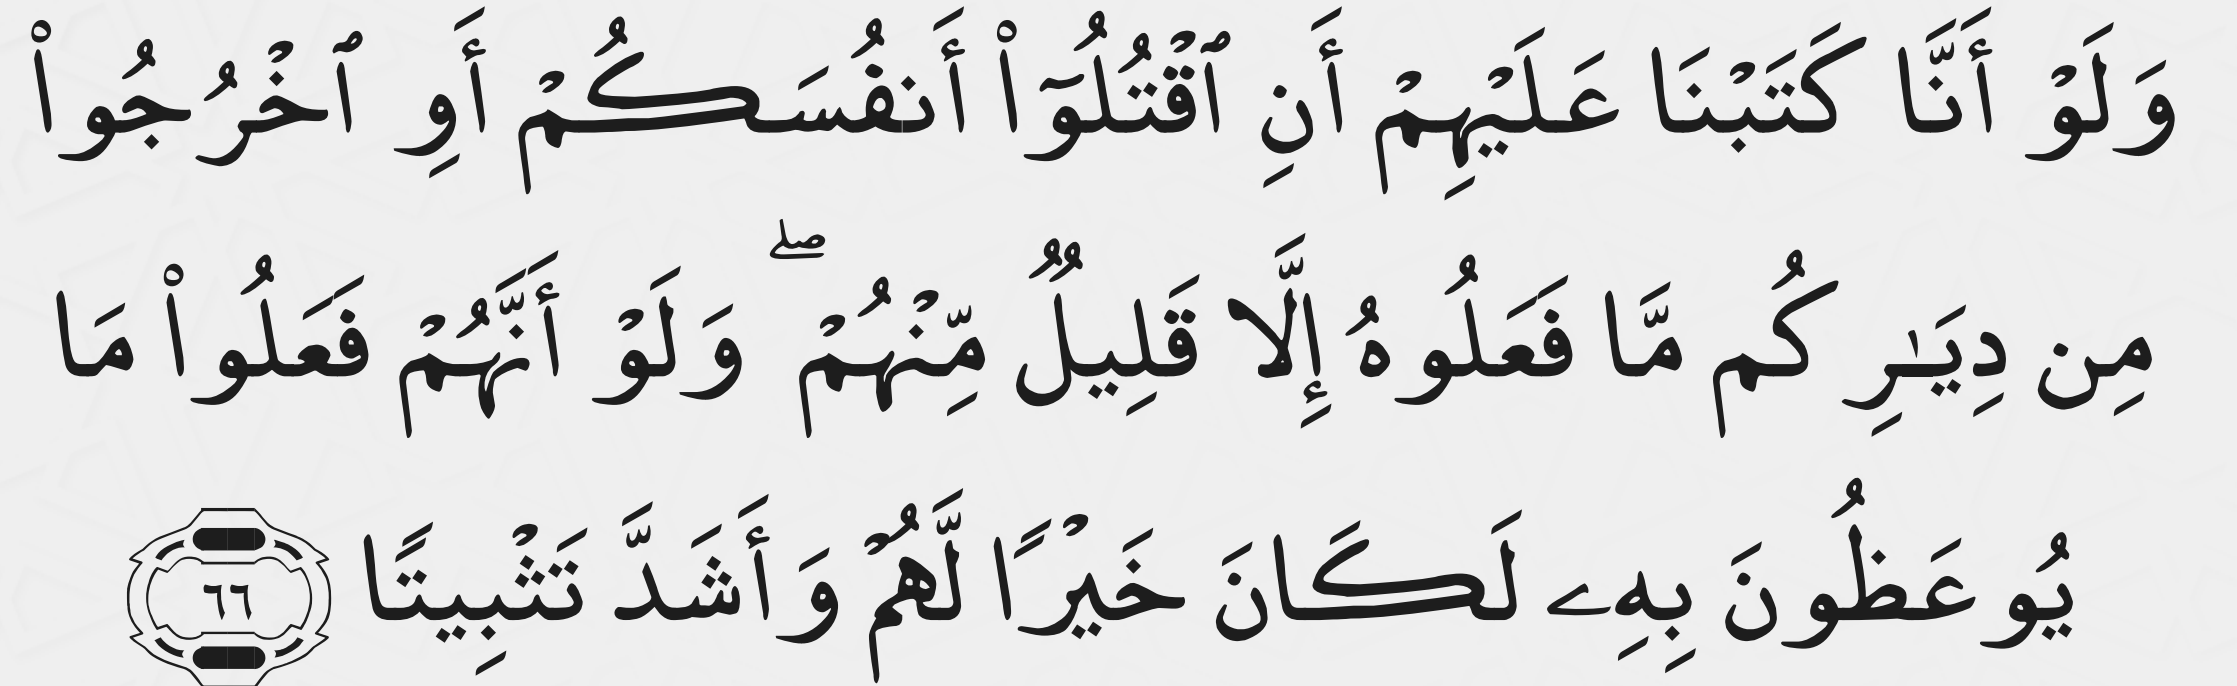 وَلَوْ أَنَّا كَتَبْنَا عَلَيْهِمْ أَنِ ٱقْتُلُوٓا۟ أَنفُسَكُمْ أَوِ ٱخْرُجُوا۟
مِن دِيَـٰرِكُم مَّا فَعَلُوهُ إِلَّا قَلِيلٌ مِّنْهُمْ ۖ وَلَوْ أَنَّهُمْ فَعَلُوا۟ مَا
يُوعَظُونَ بِهِۦ لَكَانَ خَيْرًا لَّهُمْ وَأَشَدَّ تَثْبِيتًا ٦٦